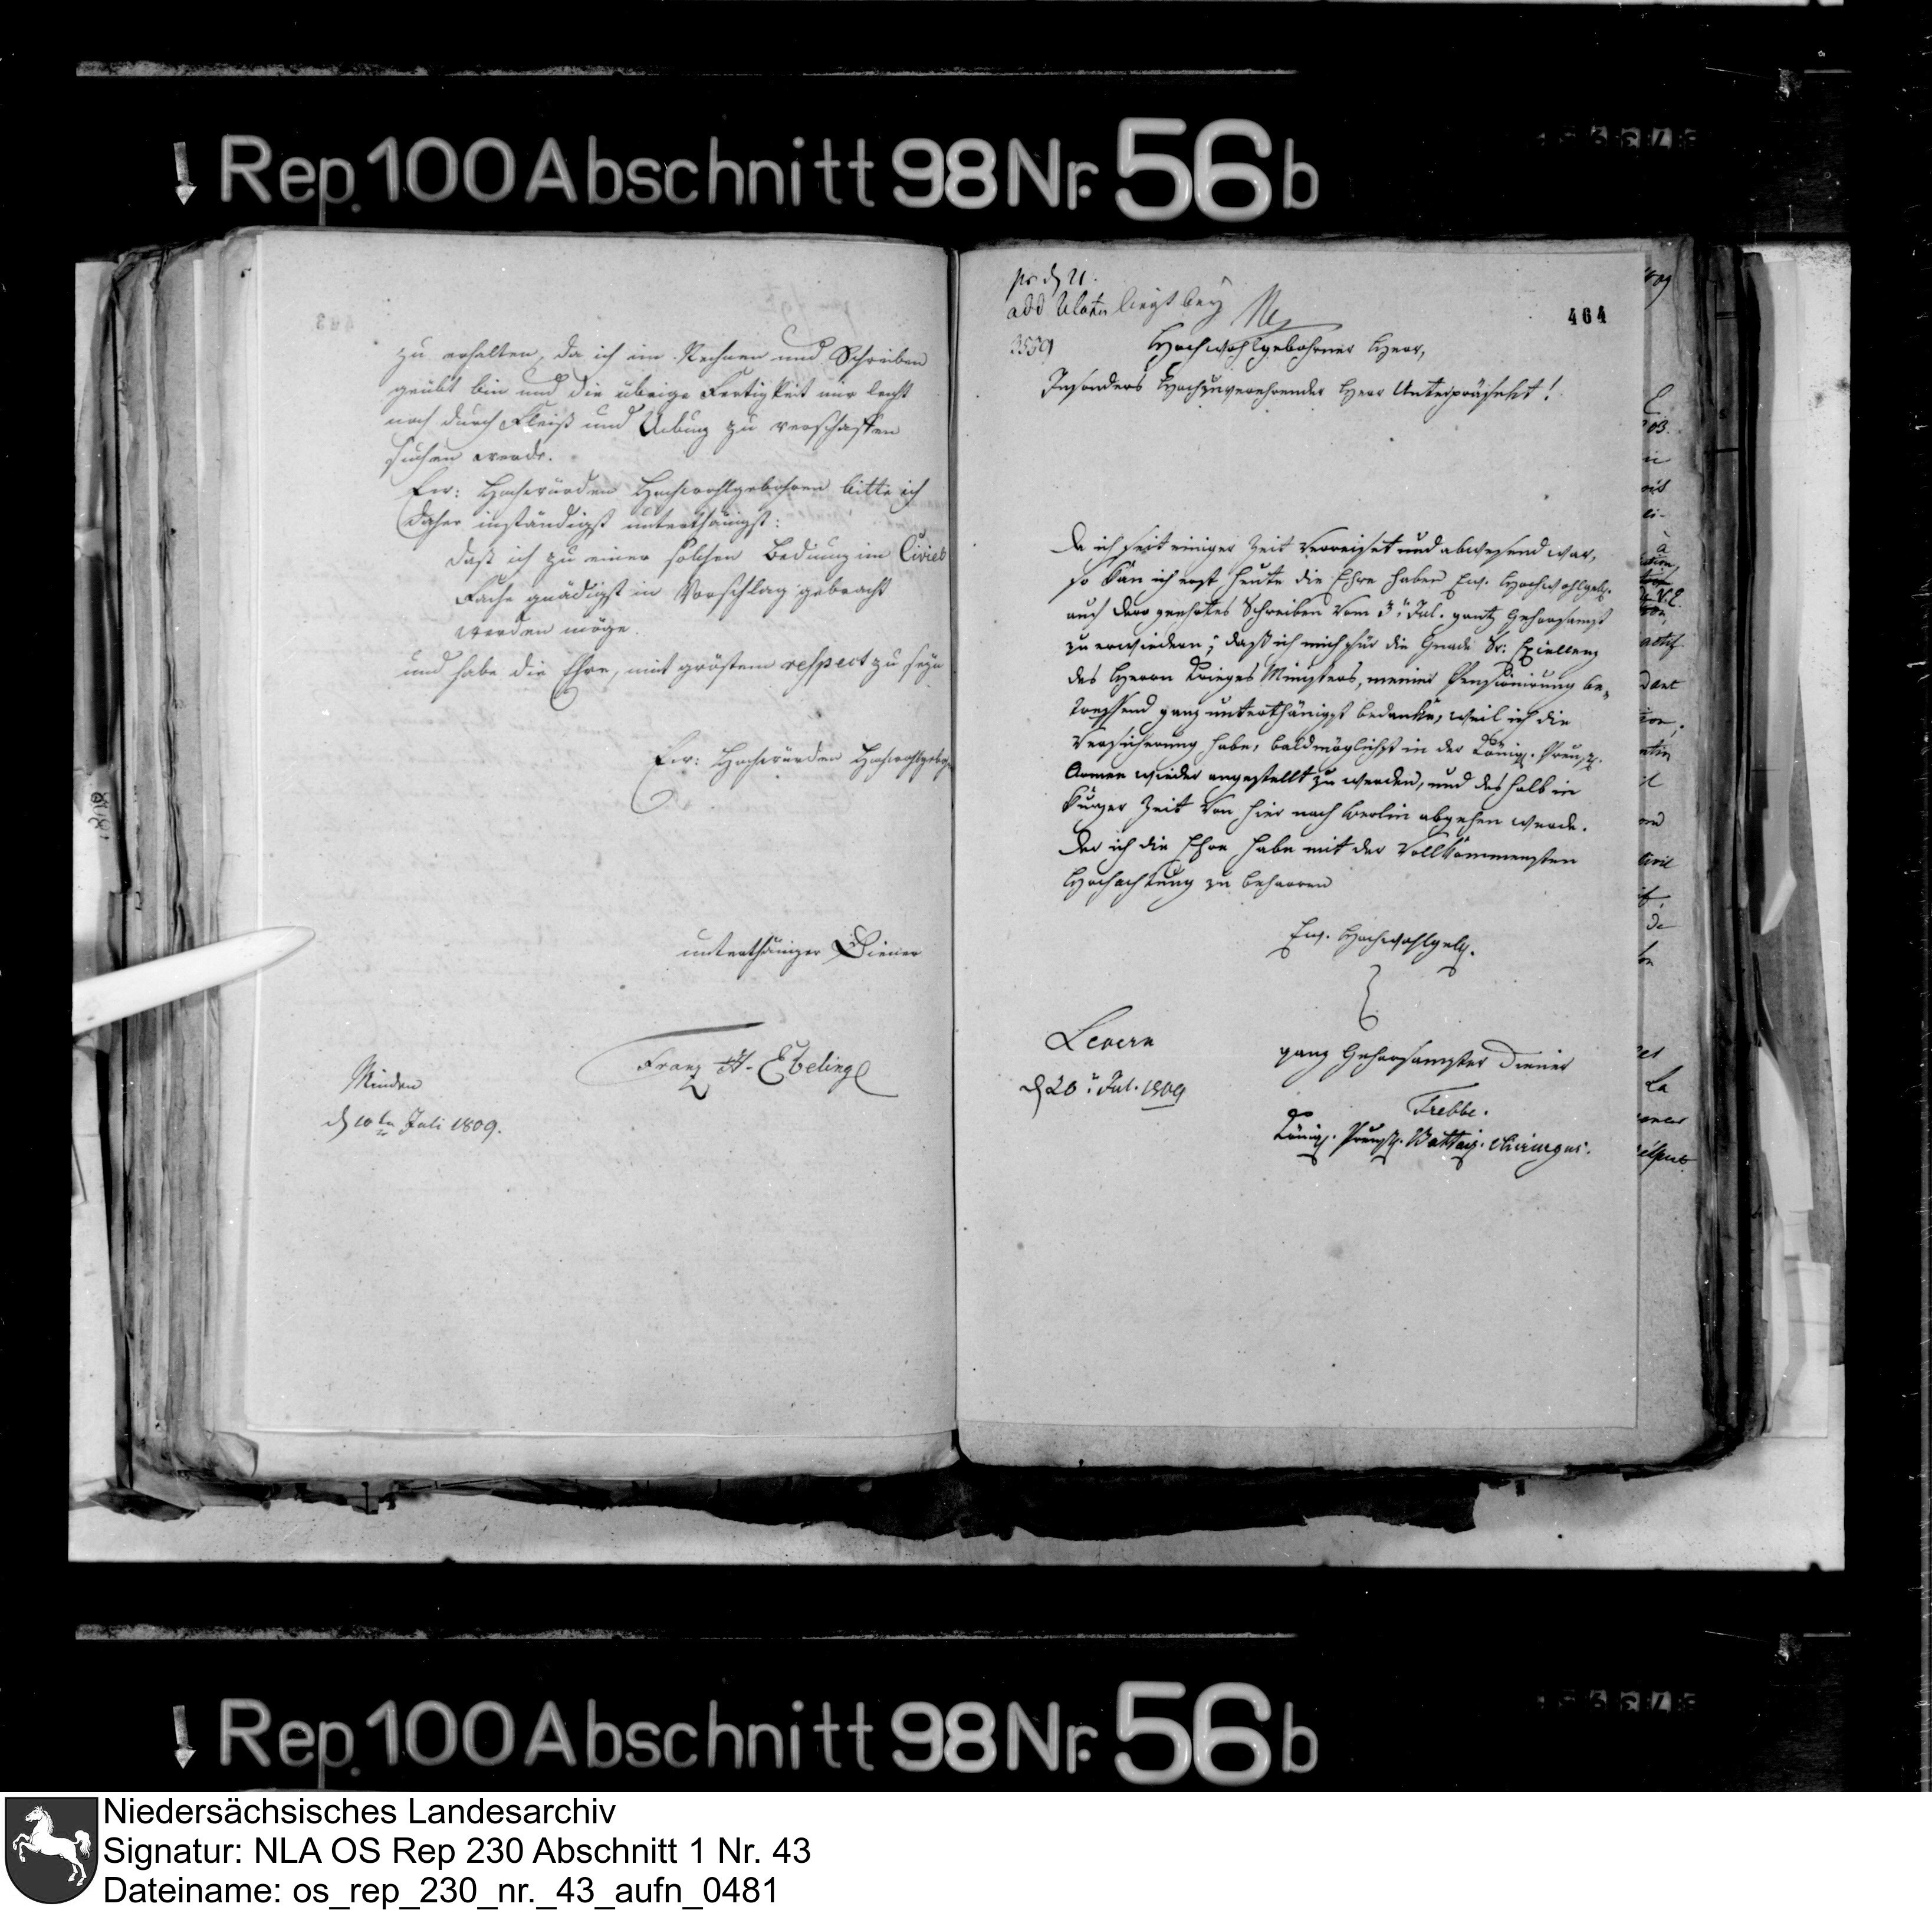 Rep. 100 Abschnitt 98 Nr. 56 b
zu erhalten, da ich im Rechnen und Schreiben
geübt bin und die übrige Fertigkeit mir leicht
noch durch Fleiß und Uebung zu verschaffen
suchen werde.
Ew: Hochwürden Hochwohlgebohren bitte ich
daher inständigst unterthänigst:
daß ich zu einer solchen Bedinung im Civiel
Fache gnädigst in Vorschlag gebracht
werden möge.
und habe die Ehre, mit gröstem respect zu seyn
Ew: Hochwürden Hochwohlgeb
unterthäniger Diener
Franz H. Ebeling
Minden
d 10ten Juli 1809.
pr d 21.
add liegt bey
464
3539
Hochwohlgebohrner Herr,
Insonders Hochzuverehrender Herr Unterpräfekt!
Da ich seit einiger Zeit verreiset und abwesend war,
so kan ich erst heute die Ehre haben Ew. Hochwohlgeb.
auf dero geehrtes Schreiben vom 3t Jul. gantz gehorsamst
zu erwiedern; daß ich mich für die Gnade Sr. Excellenz
des Herrn Krieges Ministers, meiner Pensionirung be-
treffend ganz unterthänigst bedanke, weil ich die
Versicherung habe, baldmöglichst in der Königl. Preuß.
Armee wieder angestellt zu werden, und deshalb in
kurzer Zeit von hier nach Berlin abgehen werde.
Der ich die Ehre habe mit der Vollkommensten
Hochachtung zu beharren
Ew. Hochwohlgeb.
Levern
d 20t Jul. 1809
ganz gehorsamster Diener
Trebbe.
Königl. Preuß. Battail. Chirurgus.
Civil
de
La
Rep. 100 Abschnitt 98 Nr. 56 b
Niedersächsisches Landesarchiv
Signatur: NLA OS Rep 230 Abschnitt 1 Nr. 43
Dateiname: os_rep_230_nr._43_aufn_0481